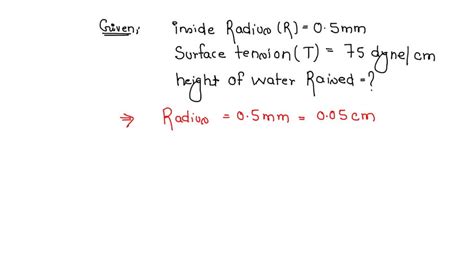 Given, inside Radius (R) = 0.5mm
Surface tension (T) = 75 dyne/cm
height of water Raised = ?
⇒ Radius = 0.5mm = 0.05 cm